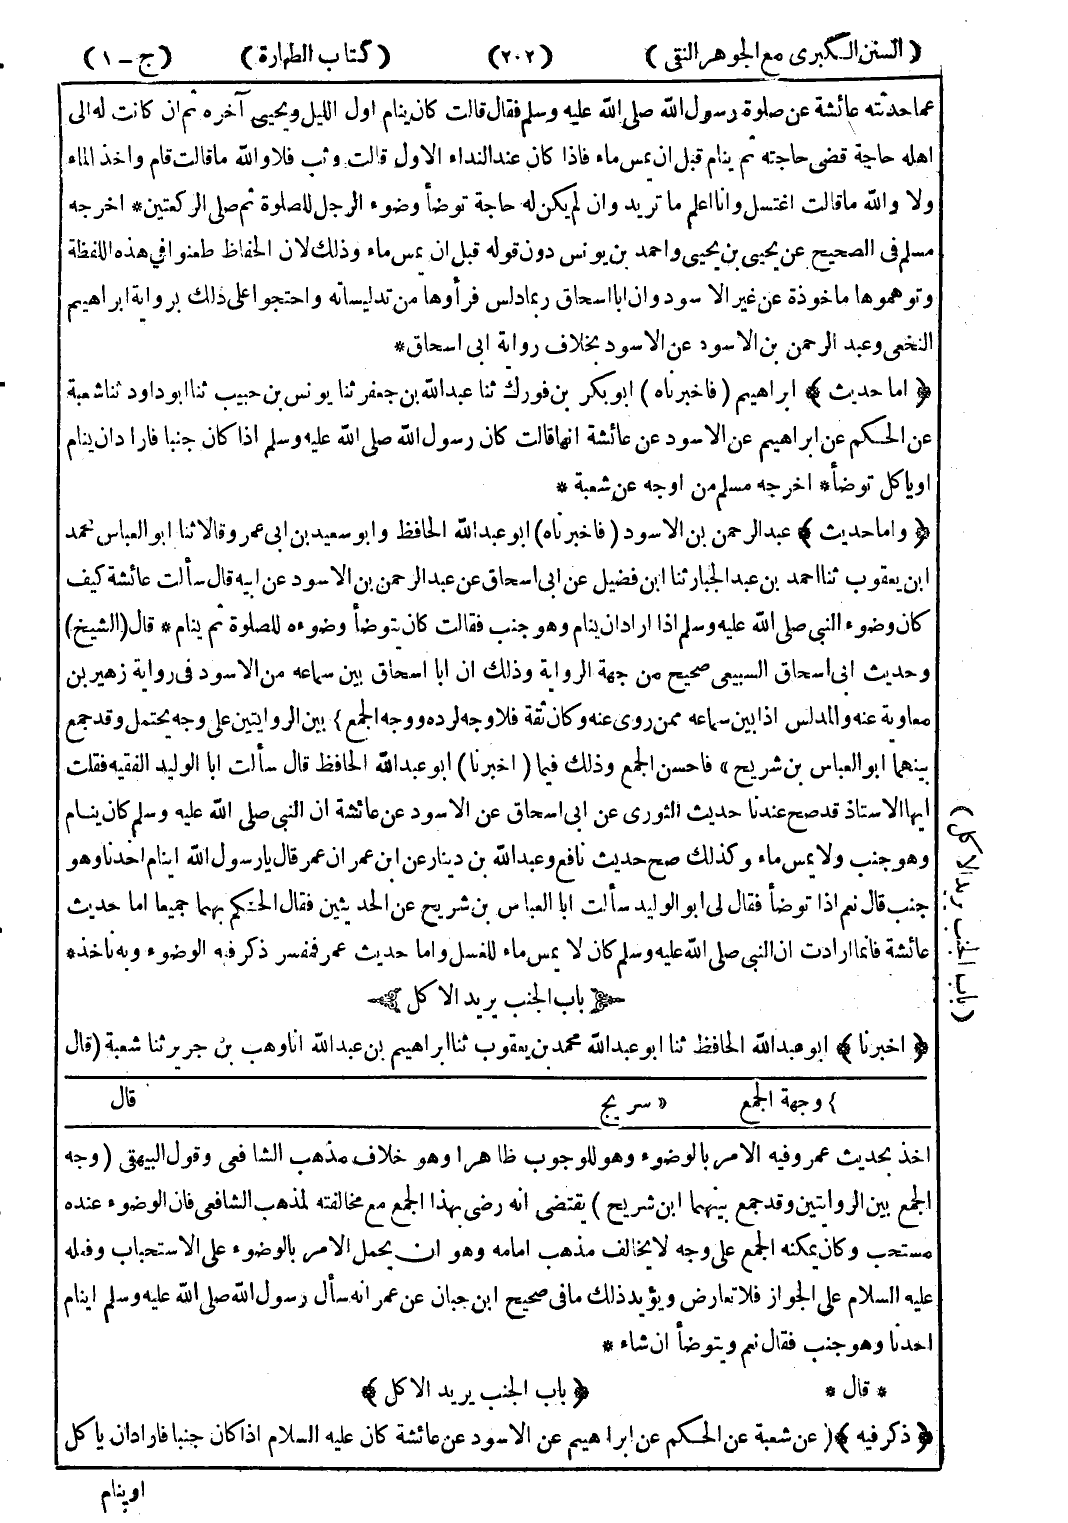 ( السنن الكبرى مع الجوهر النقى ) (٢٠٢) ( كتاب الطهارة ) ( ج - ١ )
عما حدثته عائشة عن صلوة رسول الله صلى الله عليه وسلم فقال قالت كان ينام اول الليل ويحيى آخره ثم ان كانت له الى
اهله حاجة قضى حاجته ثم ينام قبل ان يمس ماء فاذا كان عند النداء الاول قالت وثب فلا والله ما قالت قام واخذ الماء
ولا والله ما قالت اغتسل وانا اعلم ما تريد وان لم يكن له حاجة توضأ وضوء الرجل للصلوة ثم صلى الركعتين * اخرجه
مسلم فى الصحيح عن يحيى بن يحيى واحمد بن يونس دون قوله قبل ان يمس ماء وذلك لان الحفاظ طعنوا فى هذه اللفظة
وتوهموها ماخوذة عن غير الاسود وان ابا اسحاق ربما دلس فرأوها من تدليساته واحتجوا على ذلك برواية ابراهيم
النخعى وعبد الرحمن بن الاسود عن الاسود بخلاف رواية ابى اسحاق *
﴿ اما حديث ﴾ ابراهيم ( فاخبرناه ) ابو بكر بن فورك ثنا عبد الله بن جعفر ثنا يونس بن حبيب ثنا ابو داود ثنا شعبة
عن الحكم عن ابراهيم عن الاسود عن عائشة انها قالت كان رسول الله صلى الله عليه وسلم اذا كان جنبا فاراد ان ينام
او ياكل توضأ * اخرجه مسلم من اوجه عن شعبة *
﴿ واما حديث ﴾ عبد الرحمن بن الاسود ( فاخبرناه ) ابو عبد الله الحافظ وابو سعيد بن ابى عمرو قالا ثنا ابو العباس محمد
ابن يعقوب ثنا احمد بن عبد الجبار ثنا ابن فضيل عن ابى اسحاق عن عبد الرحمن بن الاسود عن ابيه قال سألت عائشة كيف
كان وضوء النبى صلى الله عليه وسلم اذا اراد ان ينام وهو جنب فقالت كان يتوضأ وضوءه للصلوة ثم ينام * قال (الشيخ)
وحديث ابى اسحاق السبيعى صحيح من جهة الرواية وذلك ان ابا اسحاق بين سماعه من الاسود فى رواية زهير بن
معاوية عنه والمدلس اذا بين سماعه ممن روى عنه وكان ثقة فلا وجه لرده ووجه الجمع } بين الروايتين على وجه يحتمل وقد جمع
بينهما ابو العباس بن شريح » فاحسن الجمع وذلك فيما ( اخبرنا ) ابو عبد الله الحافظ قال سألت ابا الوليد الفقيه فقلت
ايها الاستاذ قد صح عندنا حديث الثورى عن ابى اسحاق عن الاسود عن عائشة ان النبى صلى الله عليه وسلم كان ينام
وهو جنب ولا يمس ماء وكذلك صح حديث نافع وعبد الله بن دينار عن ابن عمر ان عمر قال يا رسول الله اينام احدنا وهو
جنب قال نعم اذا توضأ فقال لى ابو الوليد سألت ابا العباس بن شريح عن الحديثين فقال الحكم بهما جميعا اما حديث
عائشة فانما ارادت ان النبى صلى الله عليه وسلم كان لا يمس ماء للغسل واما حديث عمر فمفسر ذكر فيه الوضوء وبه ناخذ *
﴿ باب الجنب يريد الاكل ﴾
﴿ اخبرنا ﴾ ابو عبد الله الحافظ ثنا ابو عبد الله محمد بن يعقوب ثنا ابراهيم بن عبد الله انا وهب بن جرير ثنا شعبة ( قال
( باب الجنب يريد الاكل )
} وجهة الجمع » سريج قال
اخذ بحديث عمر وفيه الامر بالوضوء وهو للوجوب ظاهرا وهو خلاف مذهب الشافعى وقول البيهقى ( وجه
الجمع بين الروايتين وقد جمع بينهما ابن شريح ) يقتضى انه رضى بهذا الجمع مع مخالفته لمذهب الشافعى فان الوضوء عنده
مستحب وكان يمكنه الجمع على وجه لا يخالف مذهب امامه وهو ان يحمل الامر بالوضوء على الاستحباب وفعله
عليه السلام على الجواز فلا تعارض ويؤيد ذلك ما فى صحيح ابن حبان عن عمر انه سأل رسول الله صلى الله عليه وسلم اينام
احدنا وهو جنب فقال نعم ويتوضأ ان شاء *
* قال * ﴿ باب الجنب يريد الاكل ﴾
﴿ ذكر فيه ﴾ ( عن شعبة عن الحكم عن ابراهيم عن الاسود عن عائشة كان عليه السلام اذا كان جنبا فاراد ان ياكل
او ينام